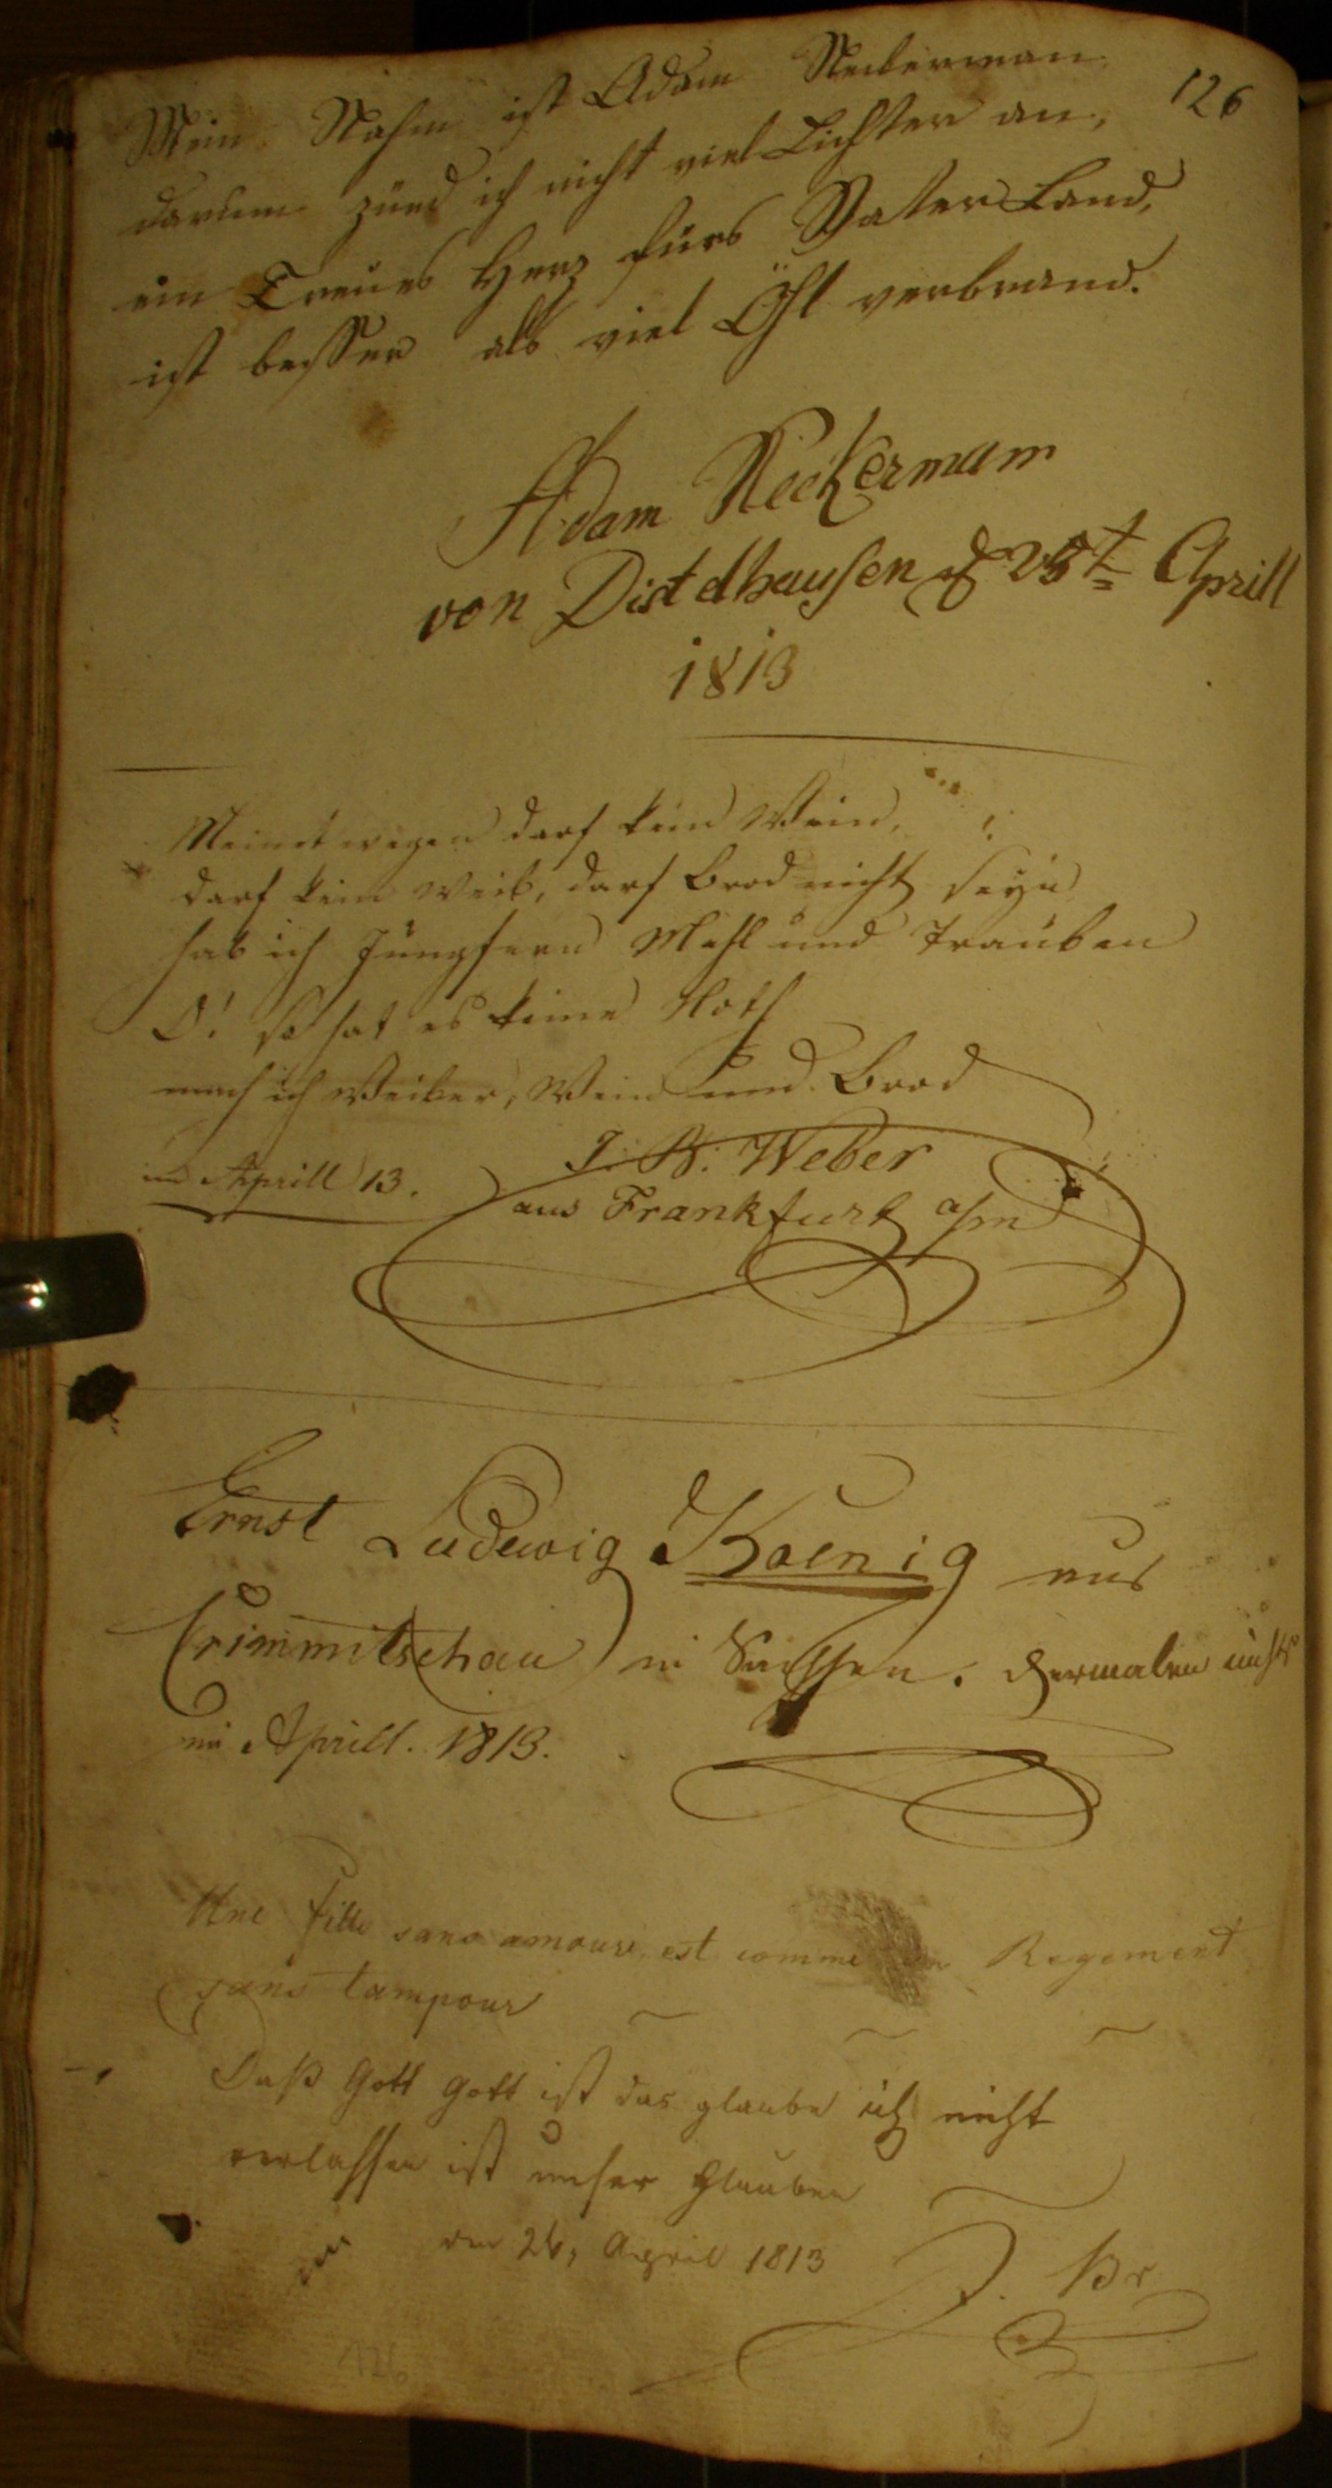 126
Mein Nahm ist Adam Neckerman
darum zünd ich nicht viel Lichter an,
ein Treues Herz fürs Vaterland,
ist besser als viel Öhl verbrand.
Adam Neckermann
von Distelhausen d 25t Aprill
1813
Meinetwegen darf kein Wein,
darf kein Weib, darf Brod nicht seyn
hab ich Jungfern Mehl und Trauben
O! so hat es keine Noth
mach ich Weiber, Wein und Brod
im Aprill 13.
J. B. Weber
aus Frankfurt a/m
Ernst Ludewig Koenig aus
Crimmitschau in Sachsen. dermalen nichts
im Aprill. 1813.
Une fille sans amour est comme un Regement
sans tampour
Daß Gott Gott ist das glaube ich nicht
verlassen ist unser Glauben
den 26, April 1813
126